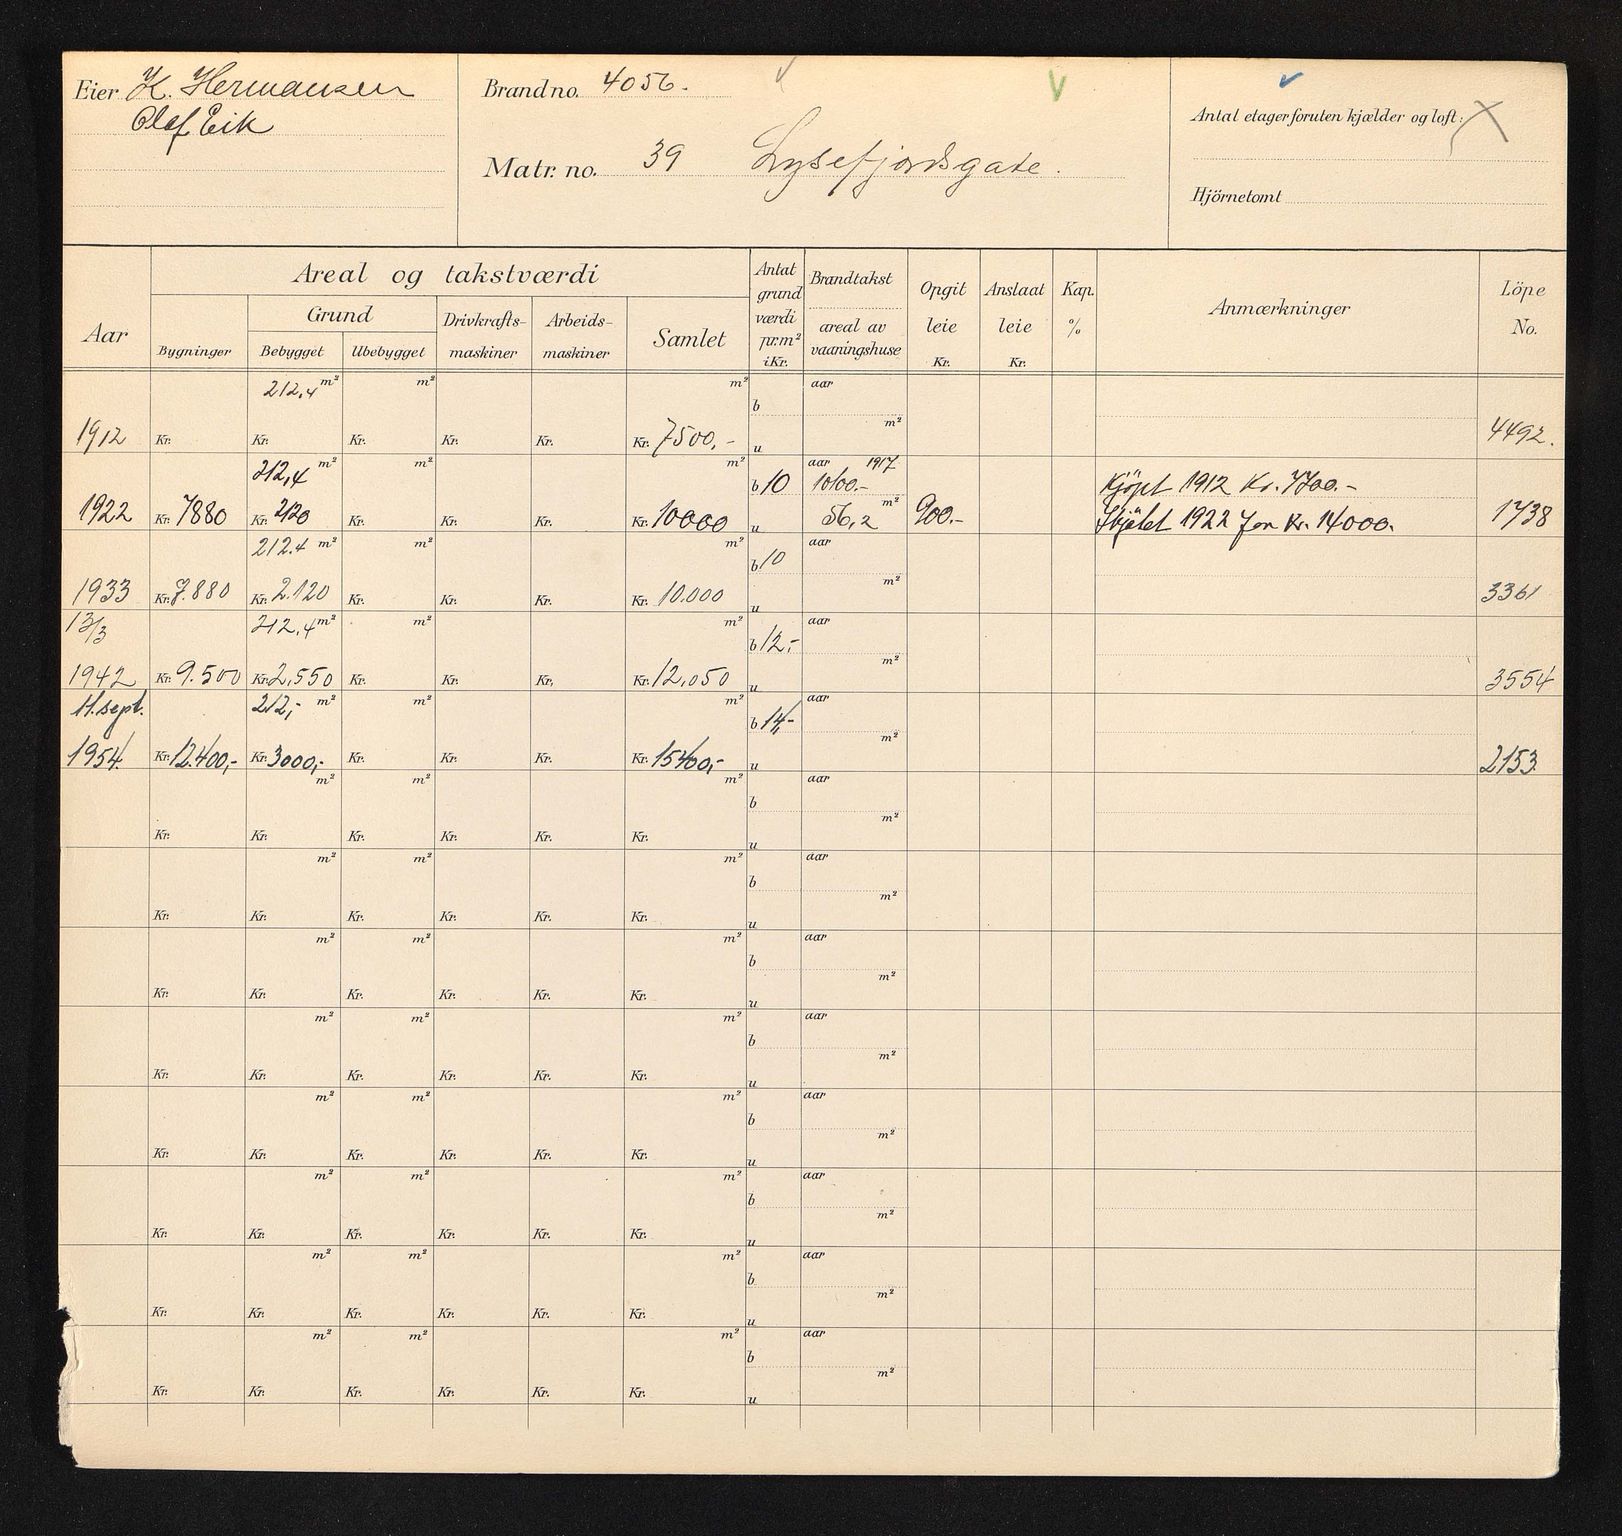 Eier K. Hermansen
Olaf Eik
Brandno. 4056.
Matr. no. 39 Lysefjordsgate.
Antal etager foruten kjælder og loft:
Hjörnetomt
Aar
Areal og takstværdi
Bygninger
Grund
Bebygget Ubebygget
Drivkrafts-
maskiner
Arbeids-
maskiner
Samlet
Antat
grund
værdi
pr.m²
i Kr.
Brandtakst
areal av
vaaningshuse
Opgit
leie
Kr.
Anslaat
leie
Kr.
Kap.
%
Anmærkninger
Löpe
No.
212,4 m² m² m² b aar
1912 Kr. Kr. Kr. Kr. Kr. Kr. 7500,- u m² 4492.
212,4 m² m² m² b 10 aar 1917
Kjöpt 1912 Kr. 7700.-
1922 Kr. 7880 Kr. 2120 Kr. Kr. Kr. Kr. 10000 u 56,2 m² 900.- Skjötet 1922 for Kr. 14000. 1738
212.4 m² m² m² b 10 aar
1933 Kr. 7.880 Kr. 2.120 Kr. Kr. Kr. Kr. 10.000 u m² 3361
13/3 212,4 m² m² m² b 12,- aar
1942 Kr. 9.500 Kr. 2,550 Kr. Kr. Kr. Kr. 12,050 u m² 3554
11.sept. 212,- m² m² m² b 14,- aar
1954. Kr. 12.400,- Kr. 3000,- Kr. Kr. Kr. Kr. 15400,- u m² 2153
m² m² m² b aar
Kr. Kr. Kr. Kr. Kr. Kr. u m²
m² m² m² b aar
Kr. Kr. Kr. Kr. Kr. Kr. u m²
m² m² m² b aar
Kr. Kr. Kr. Kr. Kr. Kr. u m²
m² m² m² b aar
Kr. Kr. Kr. Kr. Kr. Kr. u m²
m² m² m² b aar
Kr. Kr. Kr. Kr. Kr. Kr. u m²
m² m² m² b aar
Kr. Kr. Kr. Kr. Kr. Kr. u m²
m² m² m² b aar
Kr. Kr. Kr. Kr. Kr. Kr. u m²
m² m² m² b aar
Kr. Kr. Kr. Kr. Kr. Kr. u m²